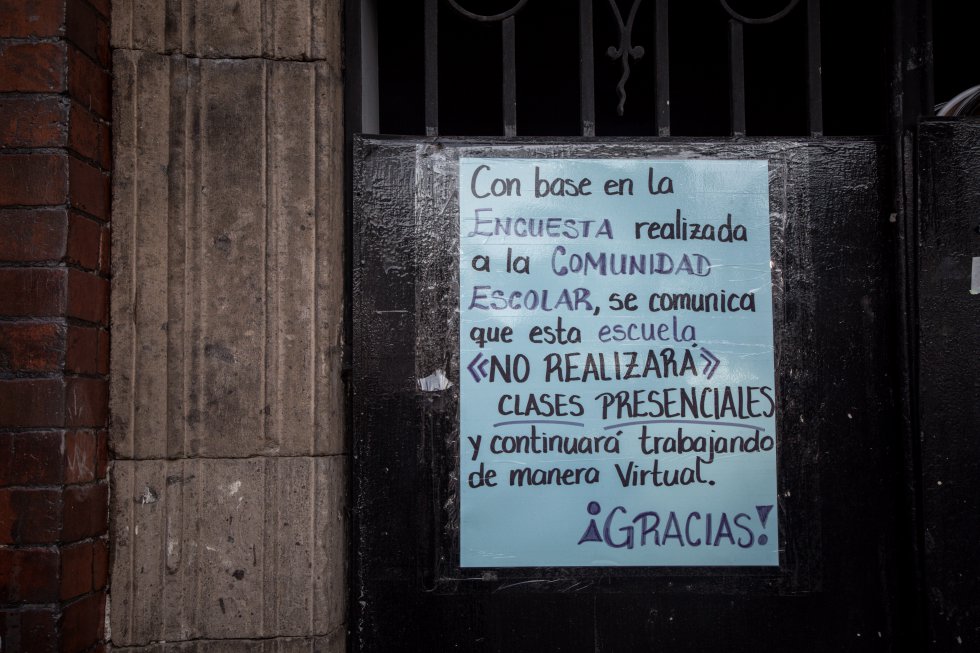 Con base en la
ENCUESTA realizada
a la COMUNIDAD
ESCOLAR, se comunica
que esta escuela
«NO REALIZARÁ»
CLASES PRESENCIALES
y continuará trabajando
de manera Virtual.
¡GRACIAS!